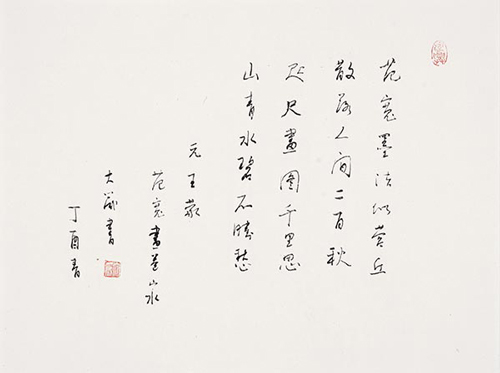 范寬墨法似营丘
散落人间二百秋
咫尺畫图千里思
山青水碧不勝愁
元王蒙
范寬畫山水
大書
丁酉